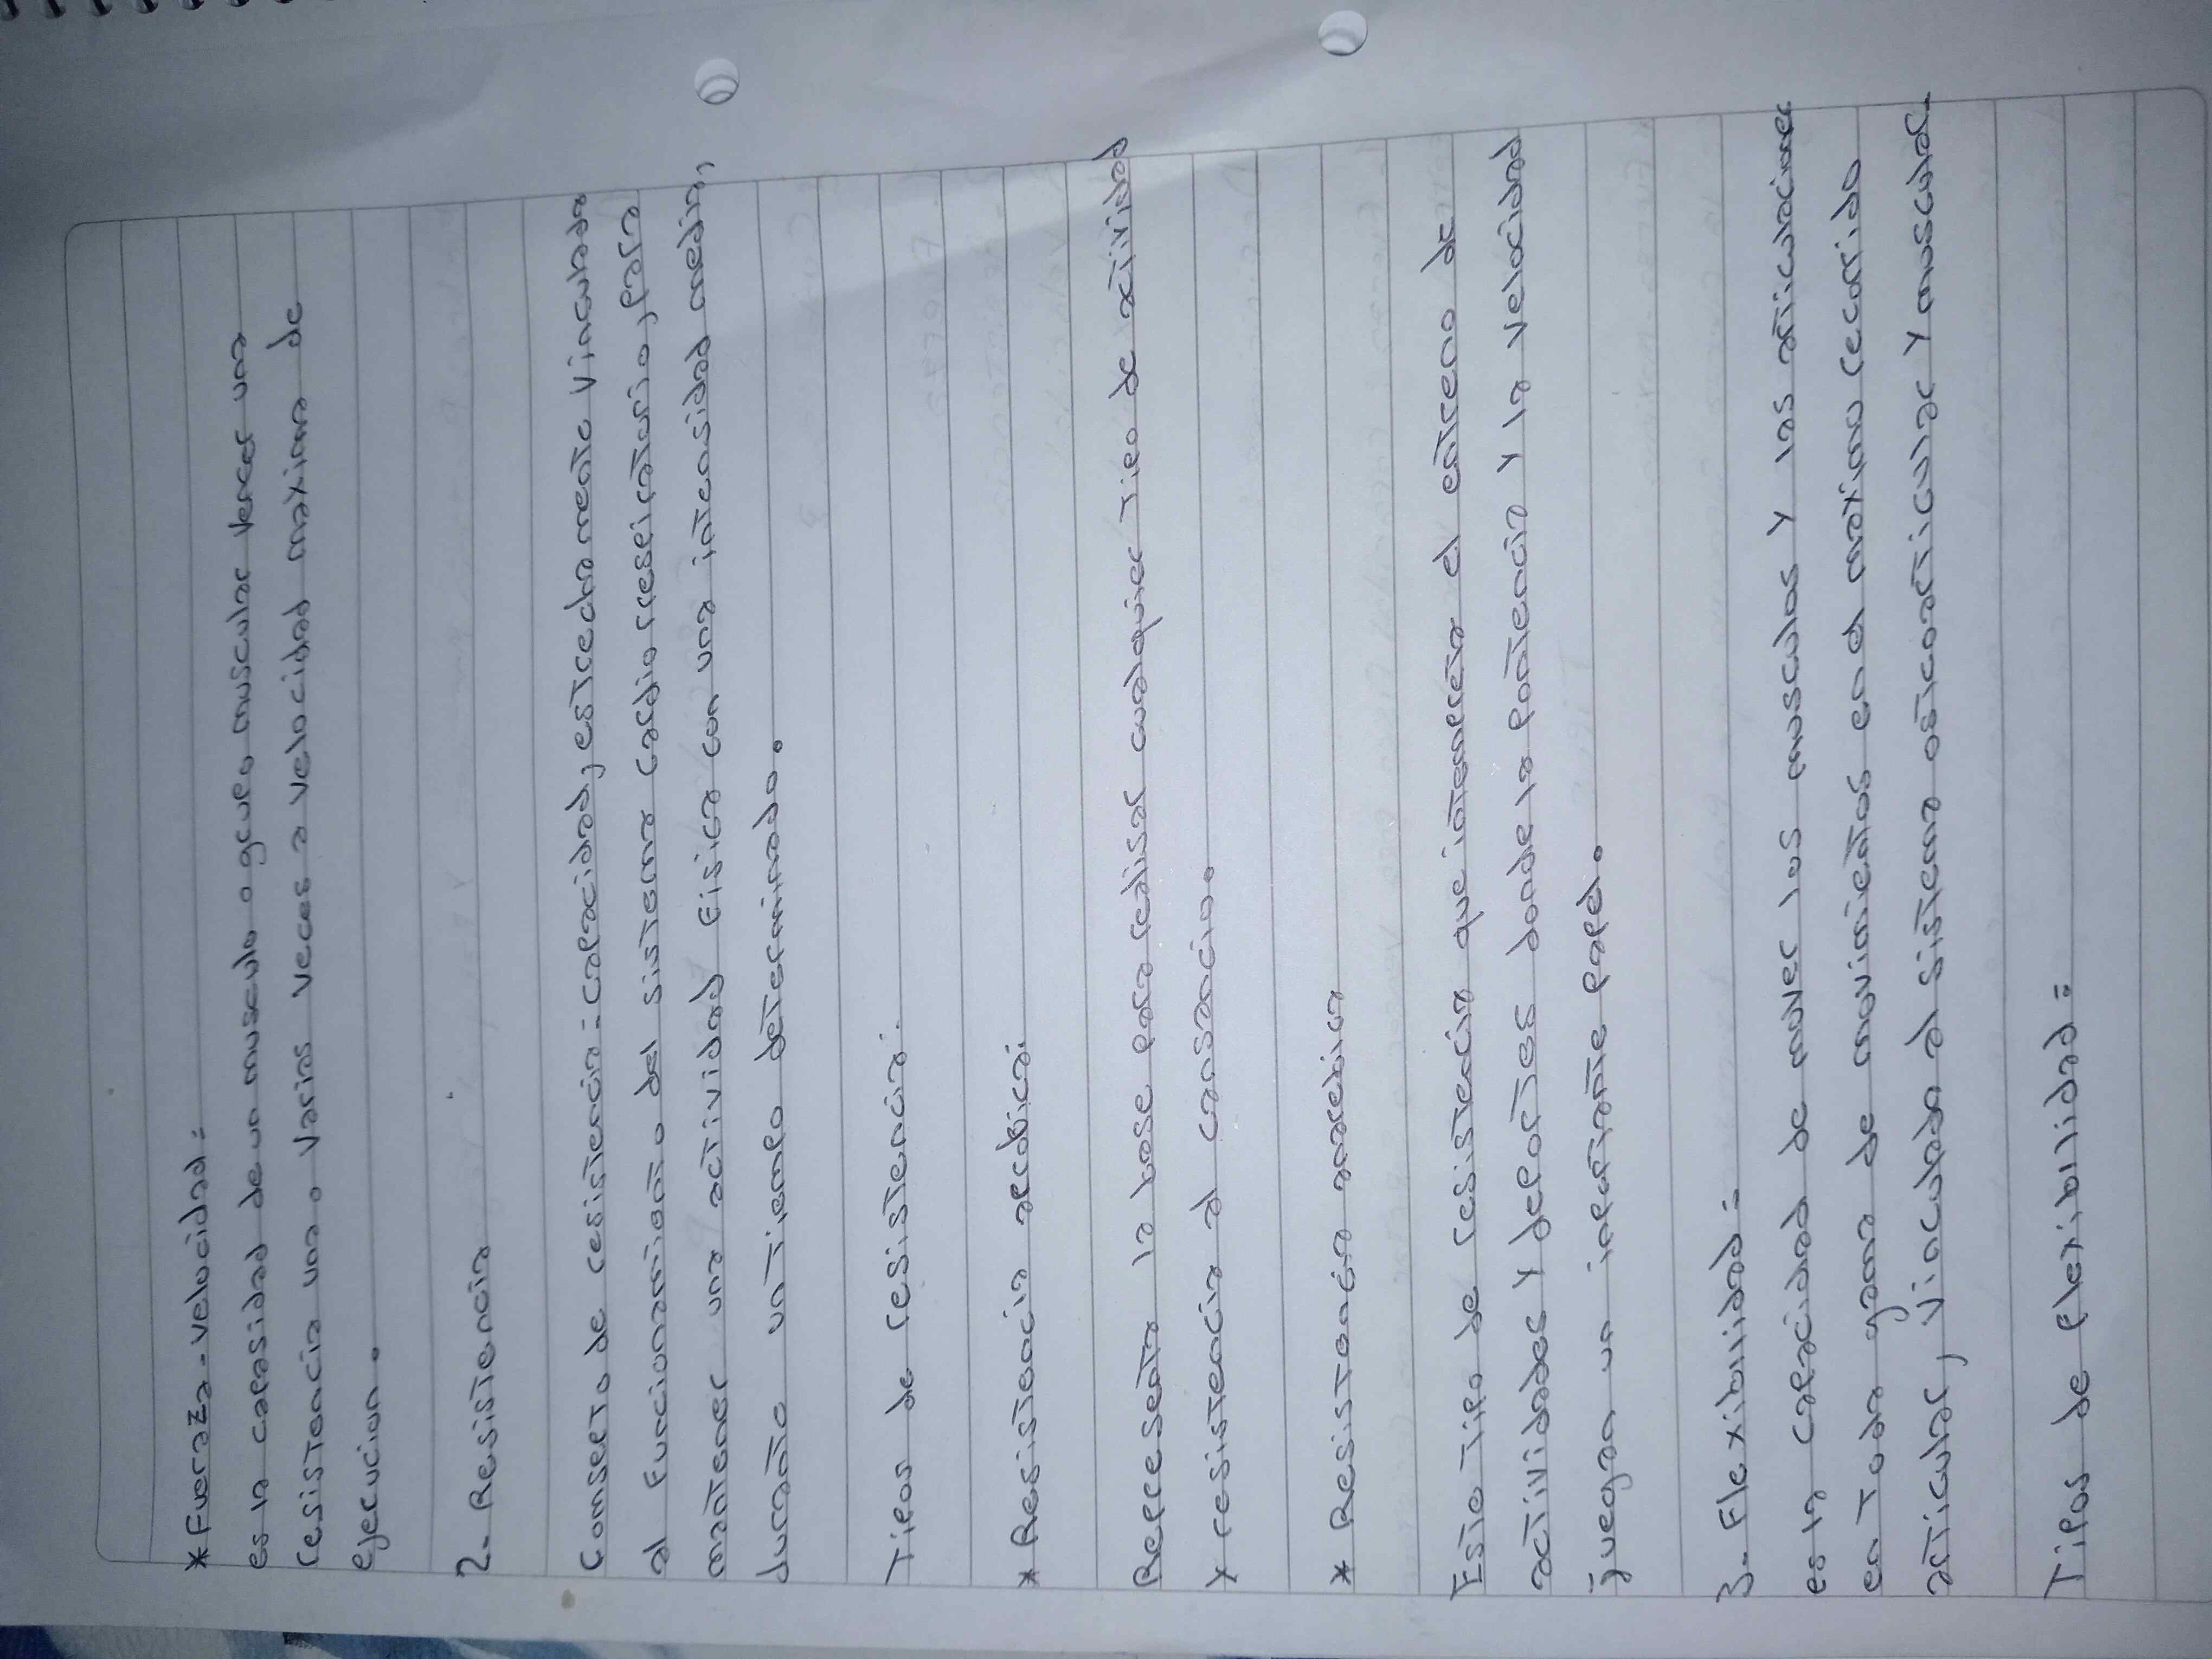 * Fueraza - velocidad =
es la capasidad de un musculo o grupo muscular vencer una
resistencia una o varias veces a velocidad maxima de
ejecucion.
2- Resistencia
Conserto de resistencia = capacidad, estrechamente vinculada
al funcionamiento del sistema cardio rrespiratorio, para
mantener una actividad fisica con una intensidad media,
durante un tiempo determinado.
Tipos de resistencia:
* Resistencia aerobica:
Representa la base para realisar cualquier tipo de actividad
y resistencia al cansancio.
* Resistencia anarebica
Este tipo de resistencia que interpreta el entreno de
actividades y deportes donde la pontencia y la velocidad
juegan un inportante papel.
3- Flexibilidad =
es la capacidad de mover los musculos y las articulaciones
en toda gama de movimientos en el maximo recorrido
articular, vinculado al sistema osteoarticular y muscular.
Tipos de flexibilidad =